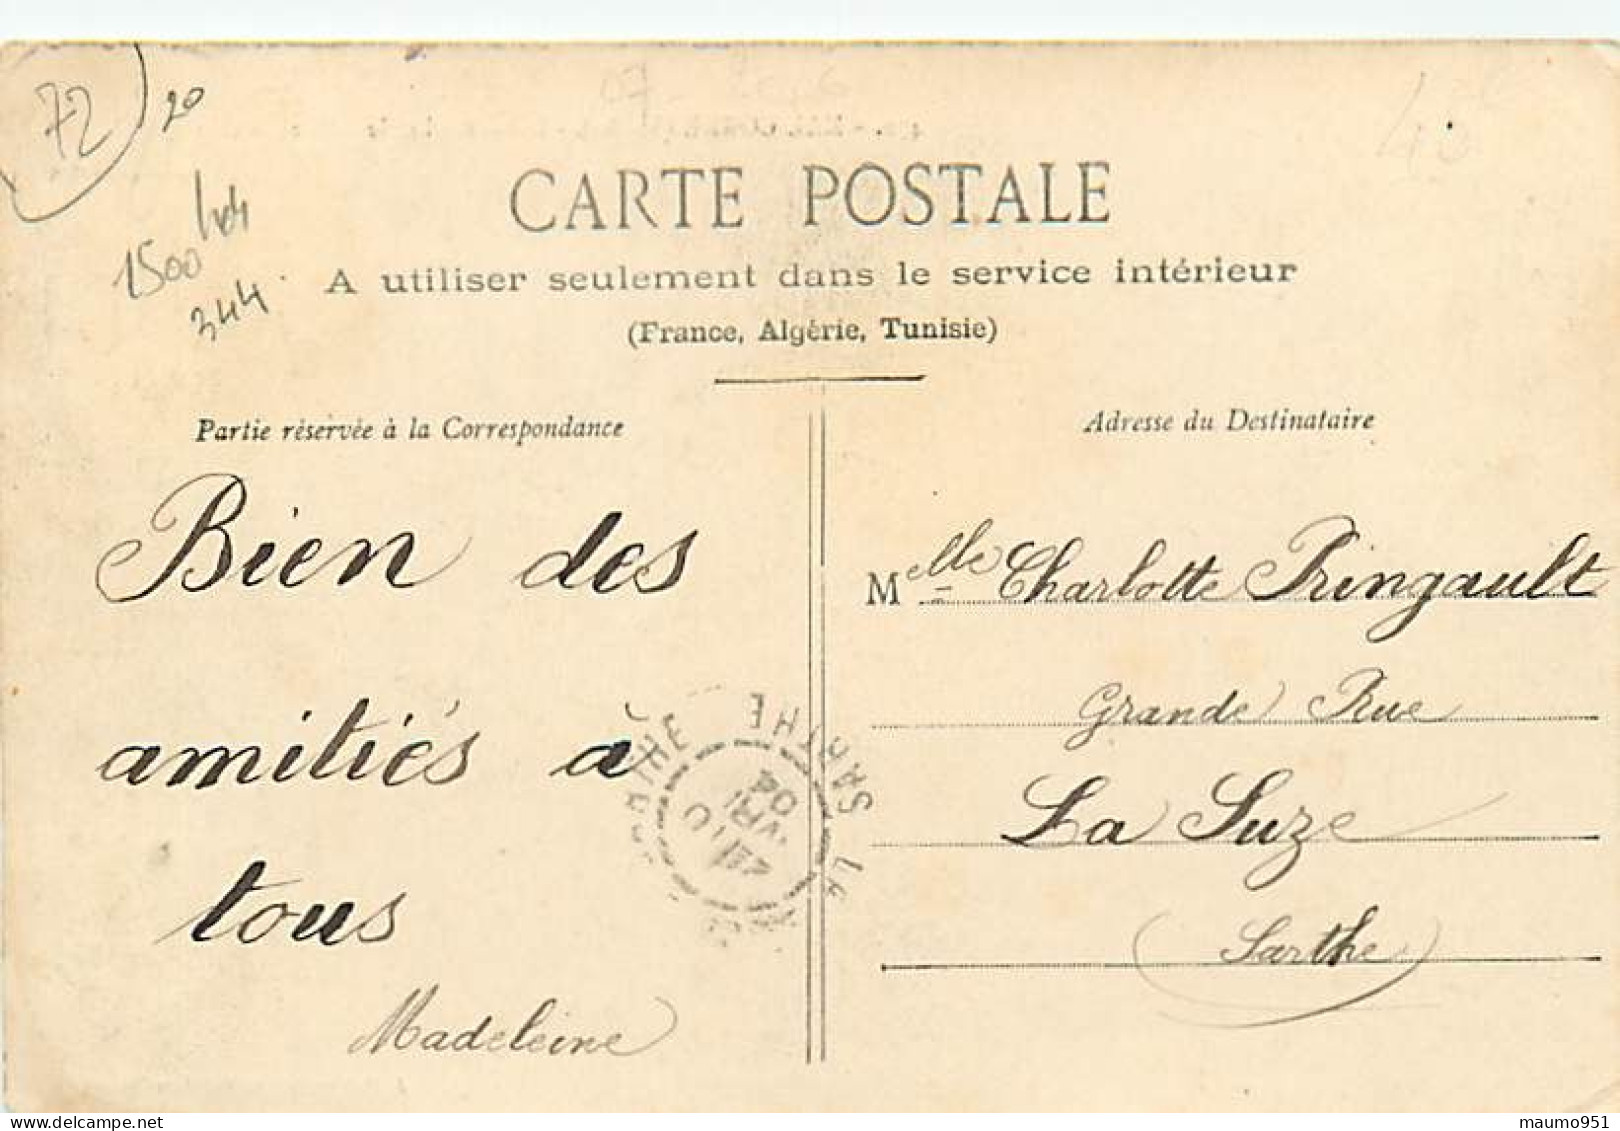 72
20
1500
344
CARTE POSTALE
A utiliser seulement dans le service intérieur
(France, Algérie, Tunisie)
Partie réservée à la Correspondance
Bien des
amitiés à
tous
Madeleine
Adresse du Destinataire
Melle Charlotte Pringault
Grande Rue
La Suze
(Sarthe)
SARTHE
04
maumo951